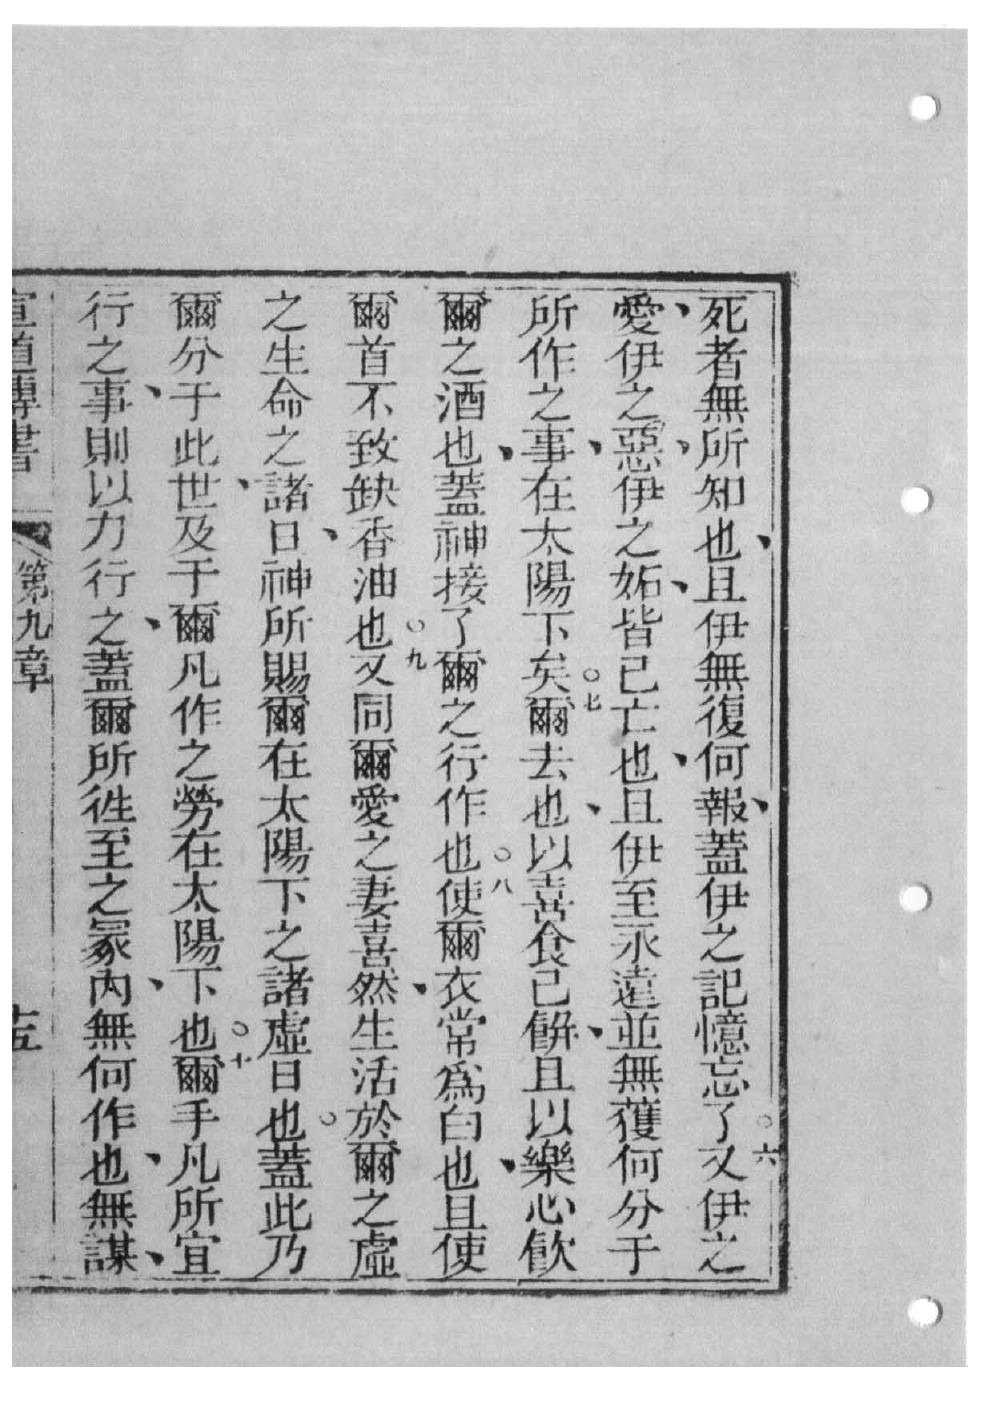 死者無所知也、且伊無復何報、蓋伊之記憶忘了○六又伊之
愛、伊之惡、伊之妬、皆已亡也、且伊至永遠並無獲何分于
所作之事、在太陽下矣○七爾去也、以喜食已餅、且以樂心飲
爾之酒也、蓋神接了爾之行作也○八使爾衣常為白也、且使
爾首不致缺香油也○九又同爾愛之妻喜然、生活於爾之虛
之生命之諸日、神所賜爾在太陽下之諸虛日也○蓋此乃
爾分于此世、及于爾凡作之勞在太陽下也○十爾手凡所宜
行之事、則以力行之、蓋爾所徃至之冢內、無何作也、無謀、
宣道傳書 第九章 十五